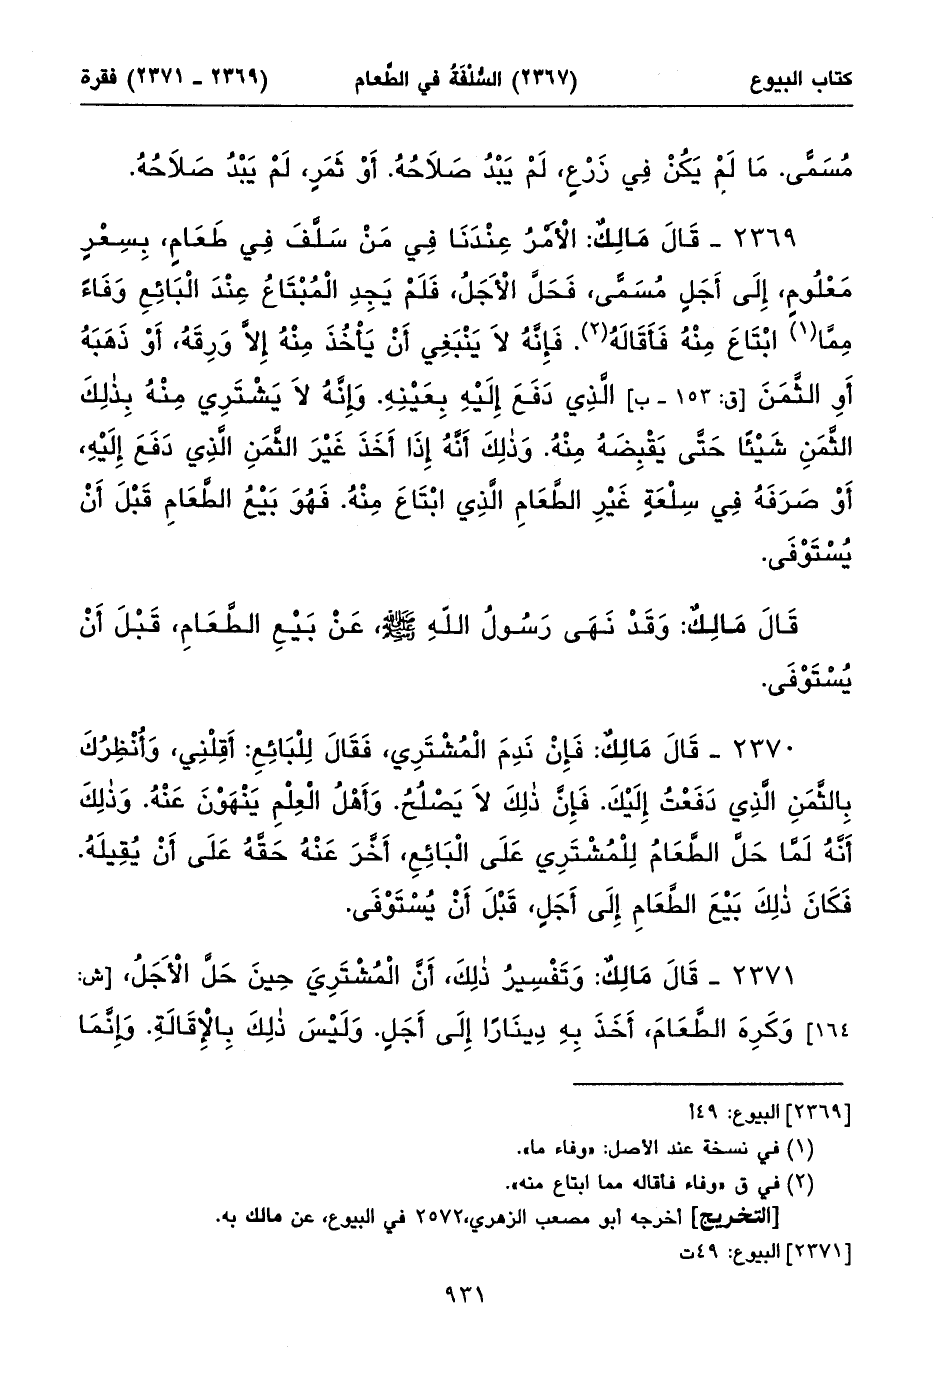 كتاب البيوع (٢٣٦٧) السُّلْفَةُ في الطَّعام (٢٣٦٩ ـ ٢٣٧١) فقرة
مُسَمًّى. مَا لَمْ يَكُنْ فِي زَرْعٍ، لَمْ يَبْدُ صَلَاحُهُ. أَوْ ثَمَرٍ، لَمْ يَبْدُ صَلَاحُهُ.
٢٣٦٩ ـ قَالَ مَالِكٌ: الْأَمْرُ عِنْدَنَا فِي مَنْ سَلَّفَ فِي طَعَامٍ، بِسِعْرٍ
مَعْلُومٍ، إِلَى أَجَلٍ مُسَمًّى، فَحَلَّ الْأَجَلُ، فَلَمْ يَجِدِ الْمُبْتَاعُ عِنْدَ الْبَائِعِ وَفَاءً
مِمَّا(١) ابْتَاعَ مِنْهُ فَأَقَالَهُ(٢). فَإِنَّهُ لاَ يَنْبَغِي أَنْ يَأْخُذَ مِنْهُ إِلاَّ وَرِقَهُ، أَوْ ذَهَبَهُ
أَوِ الثَّمَنَ [ق: ١٥٣ ـ ب] الَّذِي دَفَعَ إِلَيْهِ بِعَيْنِهِ. وَإِنَّهُ لاَ يَشْتَرِي مِنْهُ بِذٰلِكَ
الثَّمَنِ شَيْئًا حَتَّى يَقْبِضَهُ مِنْهُ. وَذٰلِكَ أَنَّهُ إِذَا أَخَذَ غَيْرَ الثَّمَنِ الَّذِي دَفَعَ إِلَيْهِ،
أَوْ صَرَفَهُ فِي سِلْعَةٍ غَيْرِ الطَّعَامِ الَّذِي ابْتَاعَ مِنْهُ. فَهُوَ بَيْعُ الطَّعَامِ قَبْلَ أَنْ
يُسْتَوْفَى.
قَالَ مَالِكٌ: وَقَدْ نَهَى رَسُولُ اللّهِ ﷺ، عَنْ بَيْعِ الطَّعَامِ، قَبْلَ أَنْ
يُسْتَوْفَى.
٢٣٧٠ ـ قَالَ مَالِكٌ: فَإِنْ نَدِمَ الْمُشْتَرِي، فَقَالَ لِلْبَائِعِ: أَقِلْنِي، وَأُنْظِرُكَ
بِالثَّمَنِ الَّذِي دَفَعْتُ إِلَيْكَ. فَإِنَّ ذٰلِكَ لاَ يَصْلُحُ. وَأَهْلُ الْعِلْمِ يَنْهَوْنَ عَنْهُ. وَذٰلِكَ
أَنَّهُ لَمَّا حَلَّ الطَّعَامُ لِلْمُشْتَرِي عَلَى الْبَائِعِ، أَخَّرَ عَنْهُ حَقَّهُ عَلَى أَنْ يُقِيلَهُ.
فَكَانَ ذٰلِكَ بَيْعَ الطَّعَامِ إِلَى أَجَلٍ، قَبْلَ أَنْ يُسْتَوْفَى.
٢٣٧١ ـ قَالَ مَالِكٌ: وَتَفْسِيرُ ذٰلِكَ، أَنَّ الْمُشْتَرِيَ حِينَ حَلَّ الْأَجَلُ، [ش:
١٦٤] وَكَرِهَ الطَّعَامَ، أَخَذَ بِهِ دِينَارًا إِلَى أَجَلٍ. وَلَيْسَ ذٰلِكَ بِالْإِقَالَةِ. وَإِنَّمَا
[٢٣٦٩] البيوع: ٤٩أ
(١) في نسخة عند الأصل: «وفاء ما».
(٢) في ق «وفاء فأقاله مما ابتاع منه».
[التخريج] أخرجه أبو مصعب الزهري، ٢٥٧٢ في البيوع، عن مالك به.
[٢٣٧١] البيوع: ٤٩ت
٩٣١